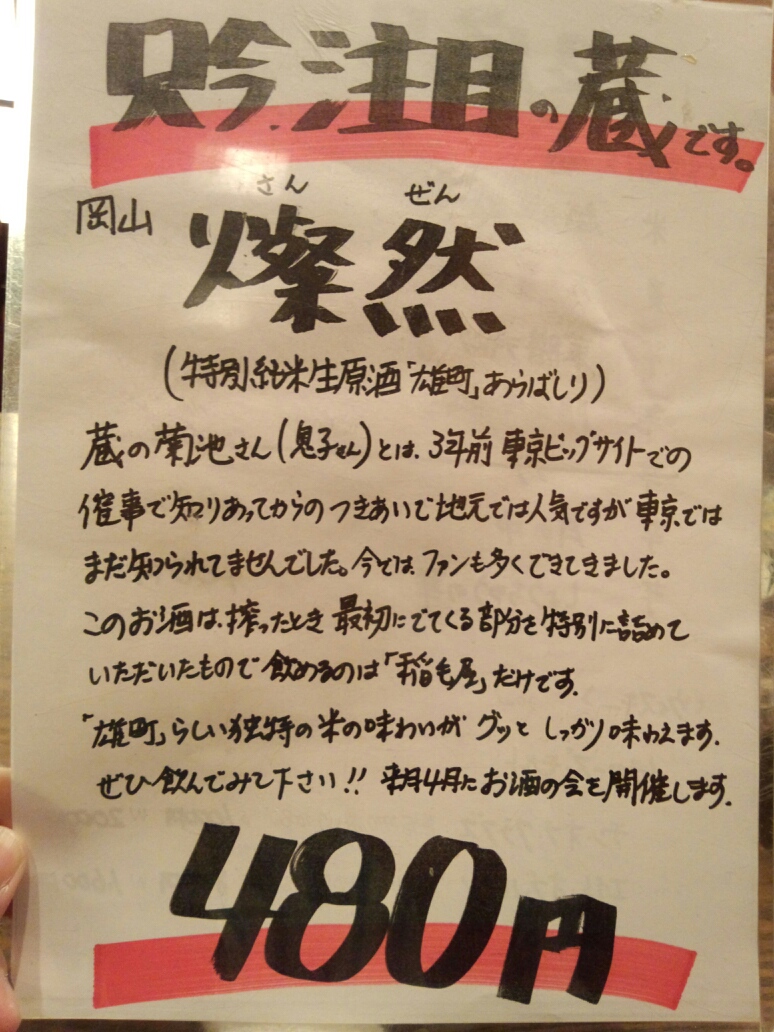 只今、注目の蔵です。
さん ぜん
岡山 燦然
(特別純米生原酒「雄町」あらばしり)
蔵の菊池さん(息子さん)とは、3年前 東京ビッグサイトでの
催事で知りあってからの つきあいで地元では人気ですが 東京では
まだ知られてませんでした。今では、ファンも多くできてきました。
このお酒は、搾ったとき 最初にでてくる部分を特別に詰めて
いただいたもので 飲めるのは「稲毛屋」だけです。
「雄町」らしい独特の米の味わいが グッと しっかり味わえます。
ぜひ飲んでみて下さい!! 来月4月にお酒の会を開催します。
480円